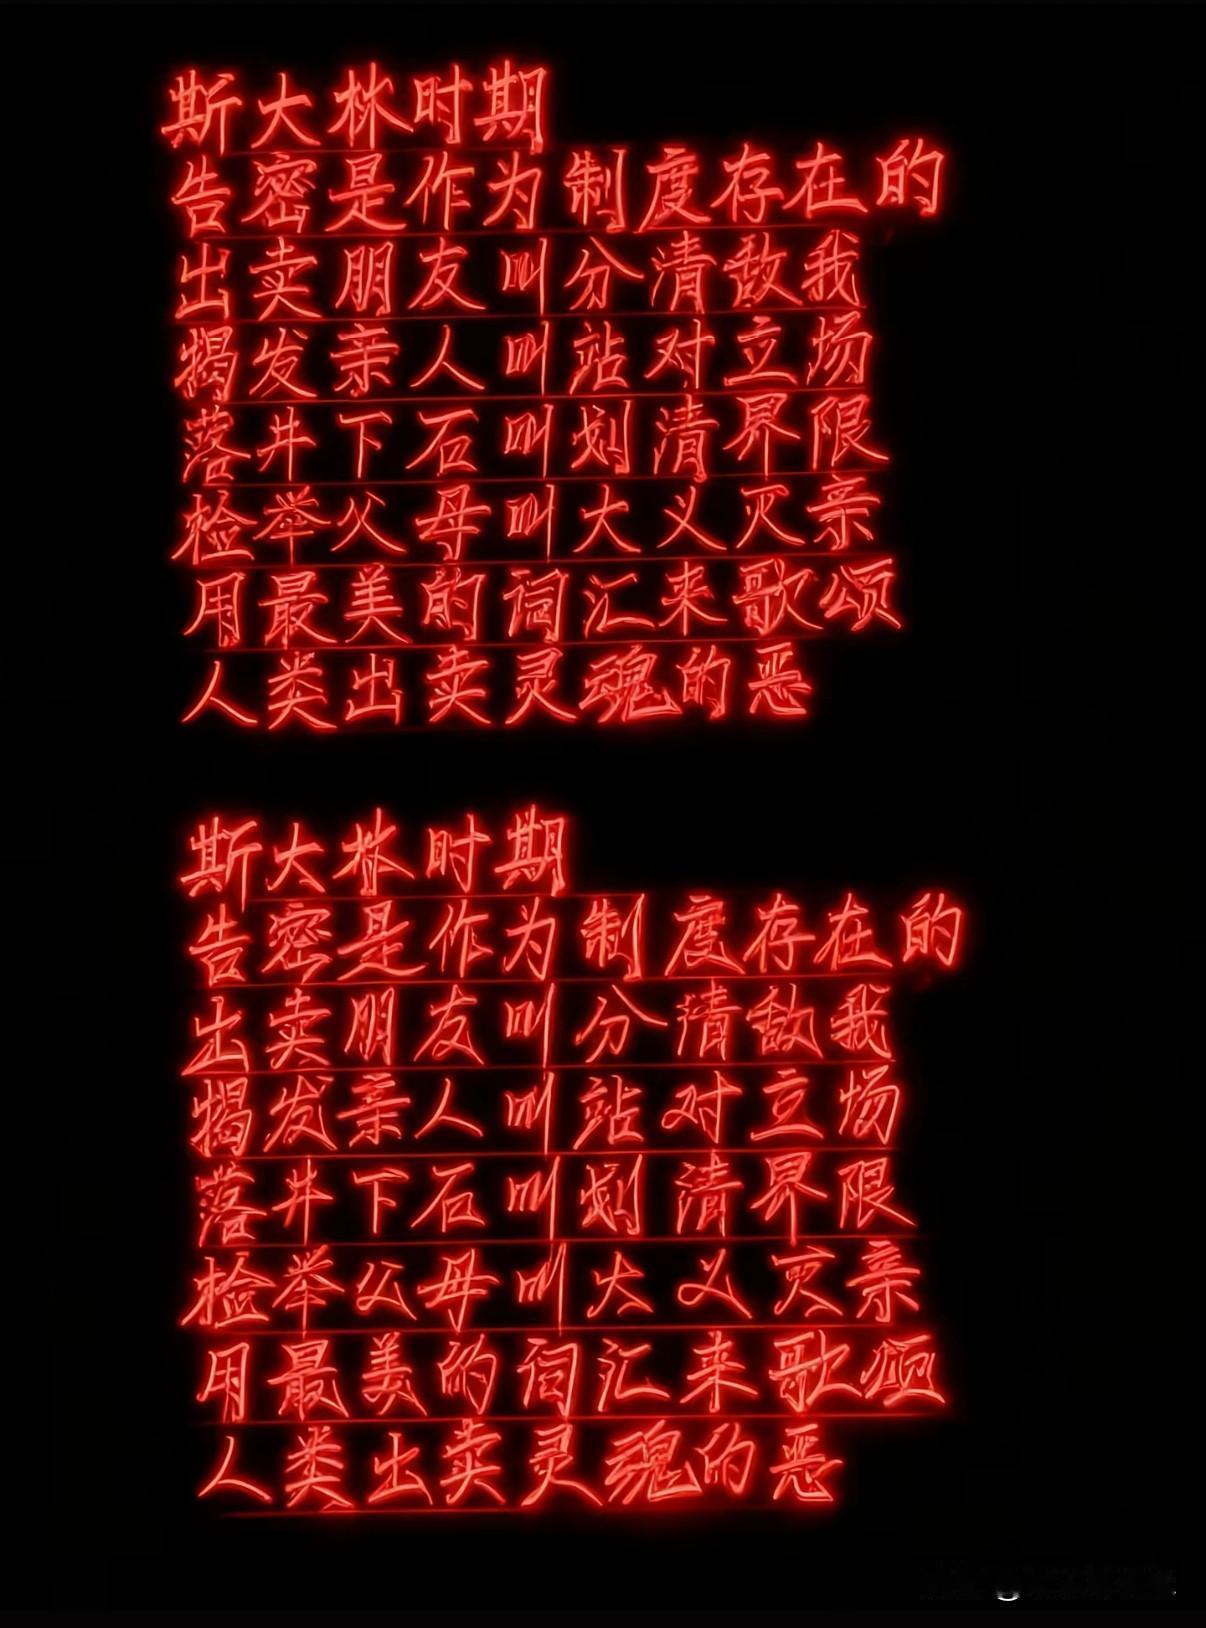 斯大林时期
告密是作为制度存在的
出卖朋友叫分清敌我
揭发亲人叫站对立场
落井下石叫划清界限
检举父母叫大义灭亲
用最美的词汇来歌颂
人类出卖灵魂的恶
斯大林时期
告密是作为制度存在的
出卖朋友叫分清敌我
揭发亲人叫站对立场
落井下石叫划清界限
检举父母叫大义灭亲
用最美的词汇来歌颂
人类出卖灵魂的恶